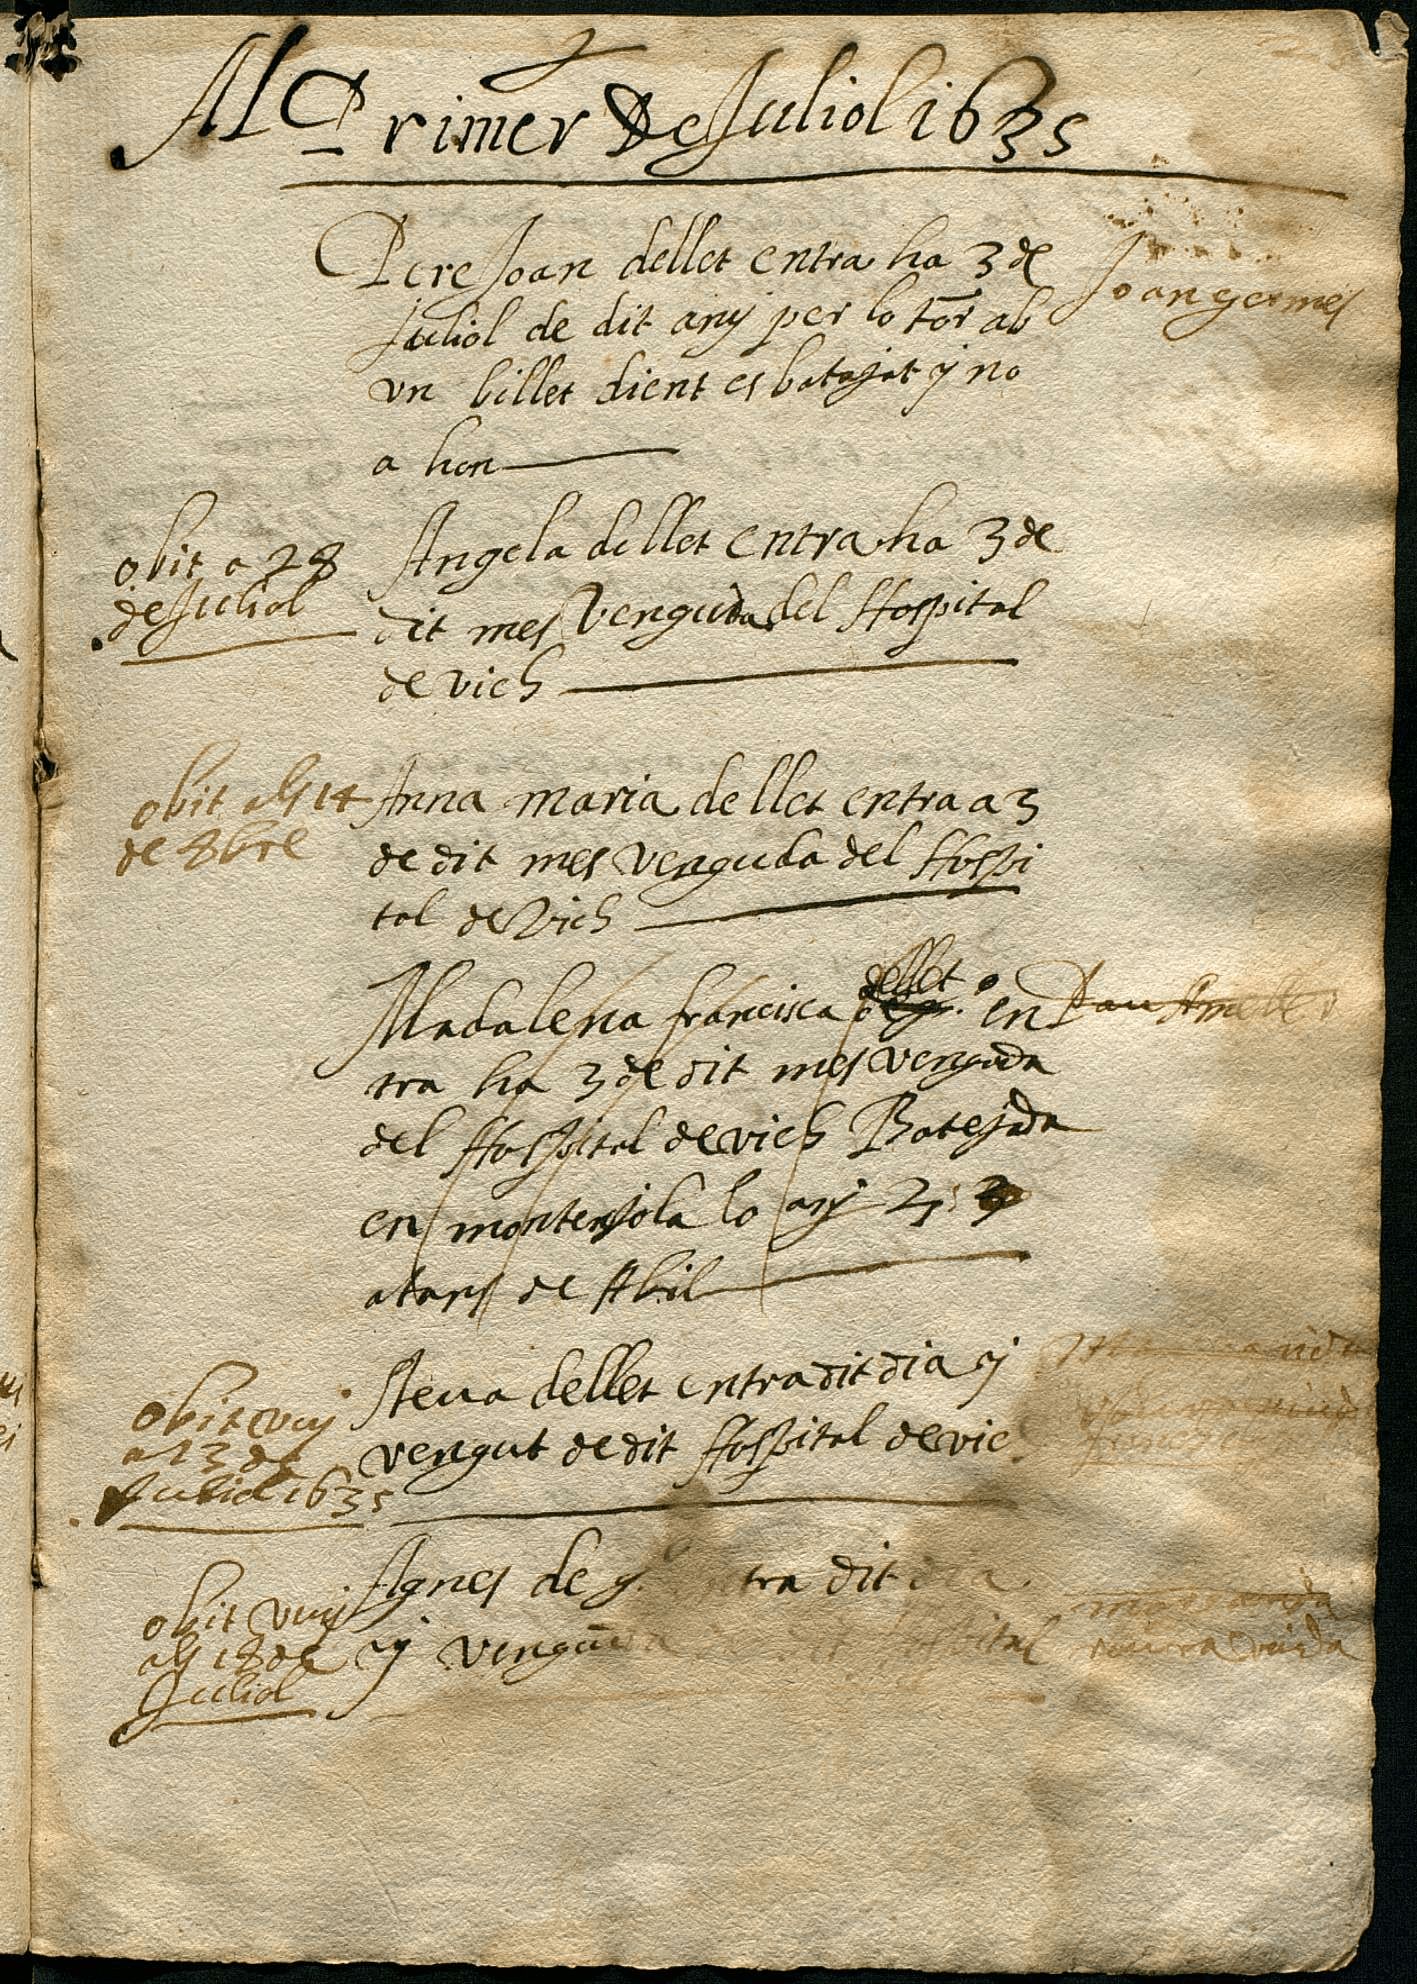 Al Primer De Juliol 1635
Pere Joan dellet entra ha 3 de
Juliol de dit any per lo tor ab
vn billet dient es batajat y no
a hon
Joan germes
obit a 28
de Juliol
Angela dellet entra ha 3 de
dit mes venguda del Hospital
de vich
obit als 14
de 8bre
Anna maria de llet entra a 3
de dit mes venguda del Hospi
tal de Vich
dellet
Madalena francisca de g. en
Pau Ameller
tra ha 3 de dit mes venguda
del Hospital de vich Batejada
en montenjola lo any
a tans de Abil
obit vuy
a 13 de
Juliol 1635
Steua dellet entra dit dia y
vengut de dit Hospital de vic
obit vuy
als 18 de
Juliol
Agnes de g. entra dit dia
y venguda de dit Hospital
margarida
viuda